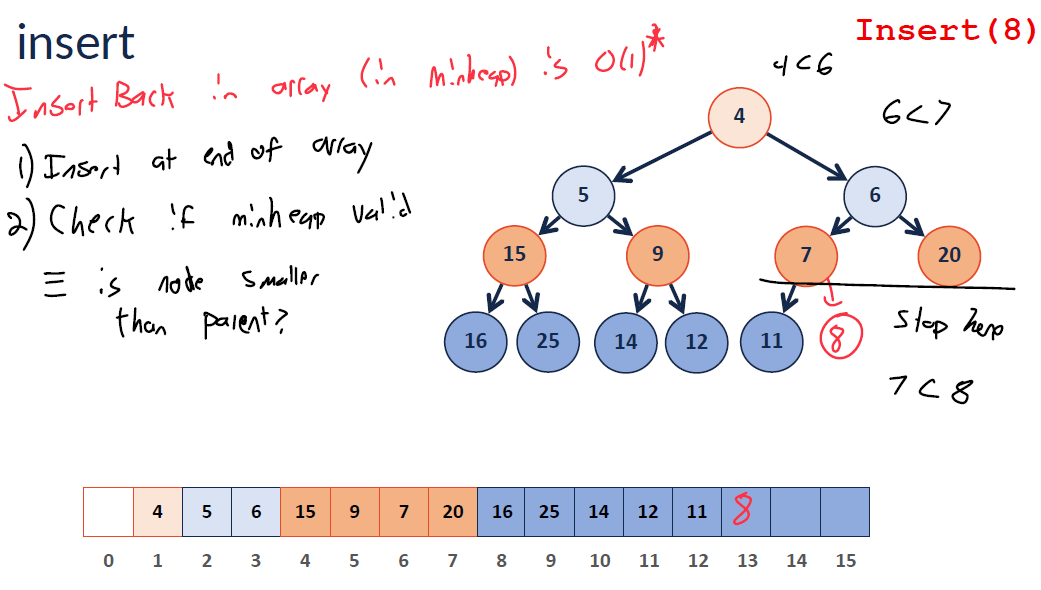 insert
Insert(8)
Insert Back in array (in minheap) is O(1)*
4<6
6<7
1) Insert at end of array
2) Check if minheap valid
≡ is node smaller
than parent?
4
5 6
15 9 7 20
16 25 14 12 11 8
stop here
7<8
4 5 6 15 9 7 20 16 25 14 12 11 8
0 1 2 3 4 5 6 7 8 9 10 11 12 13 14 15